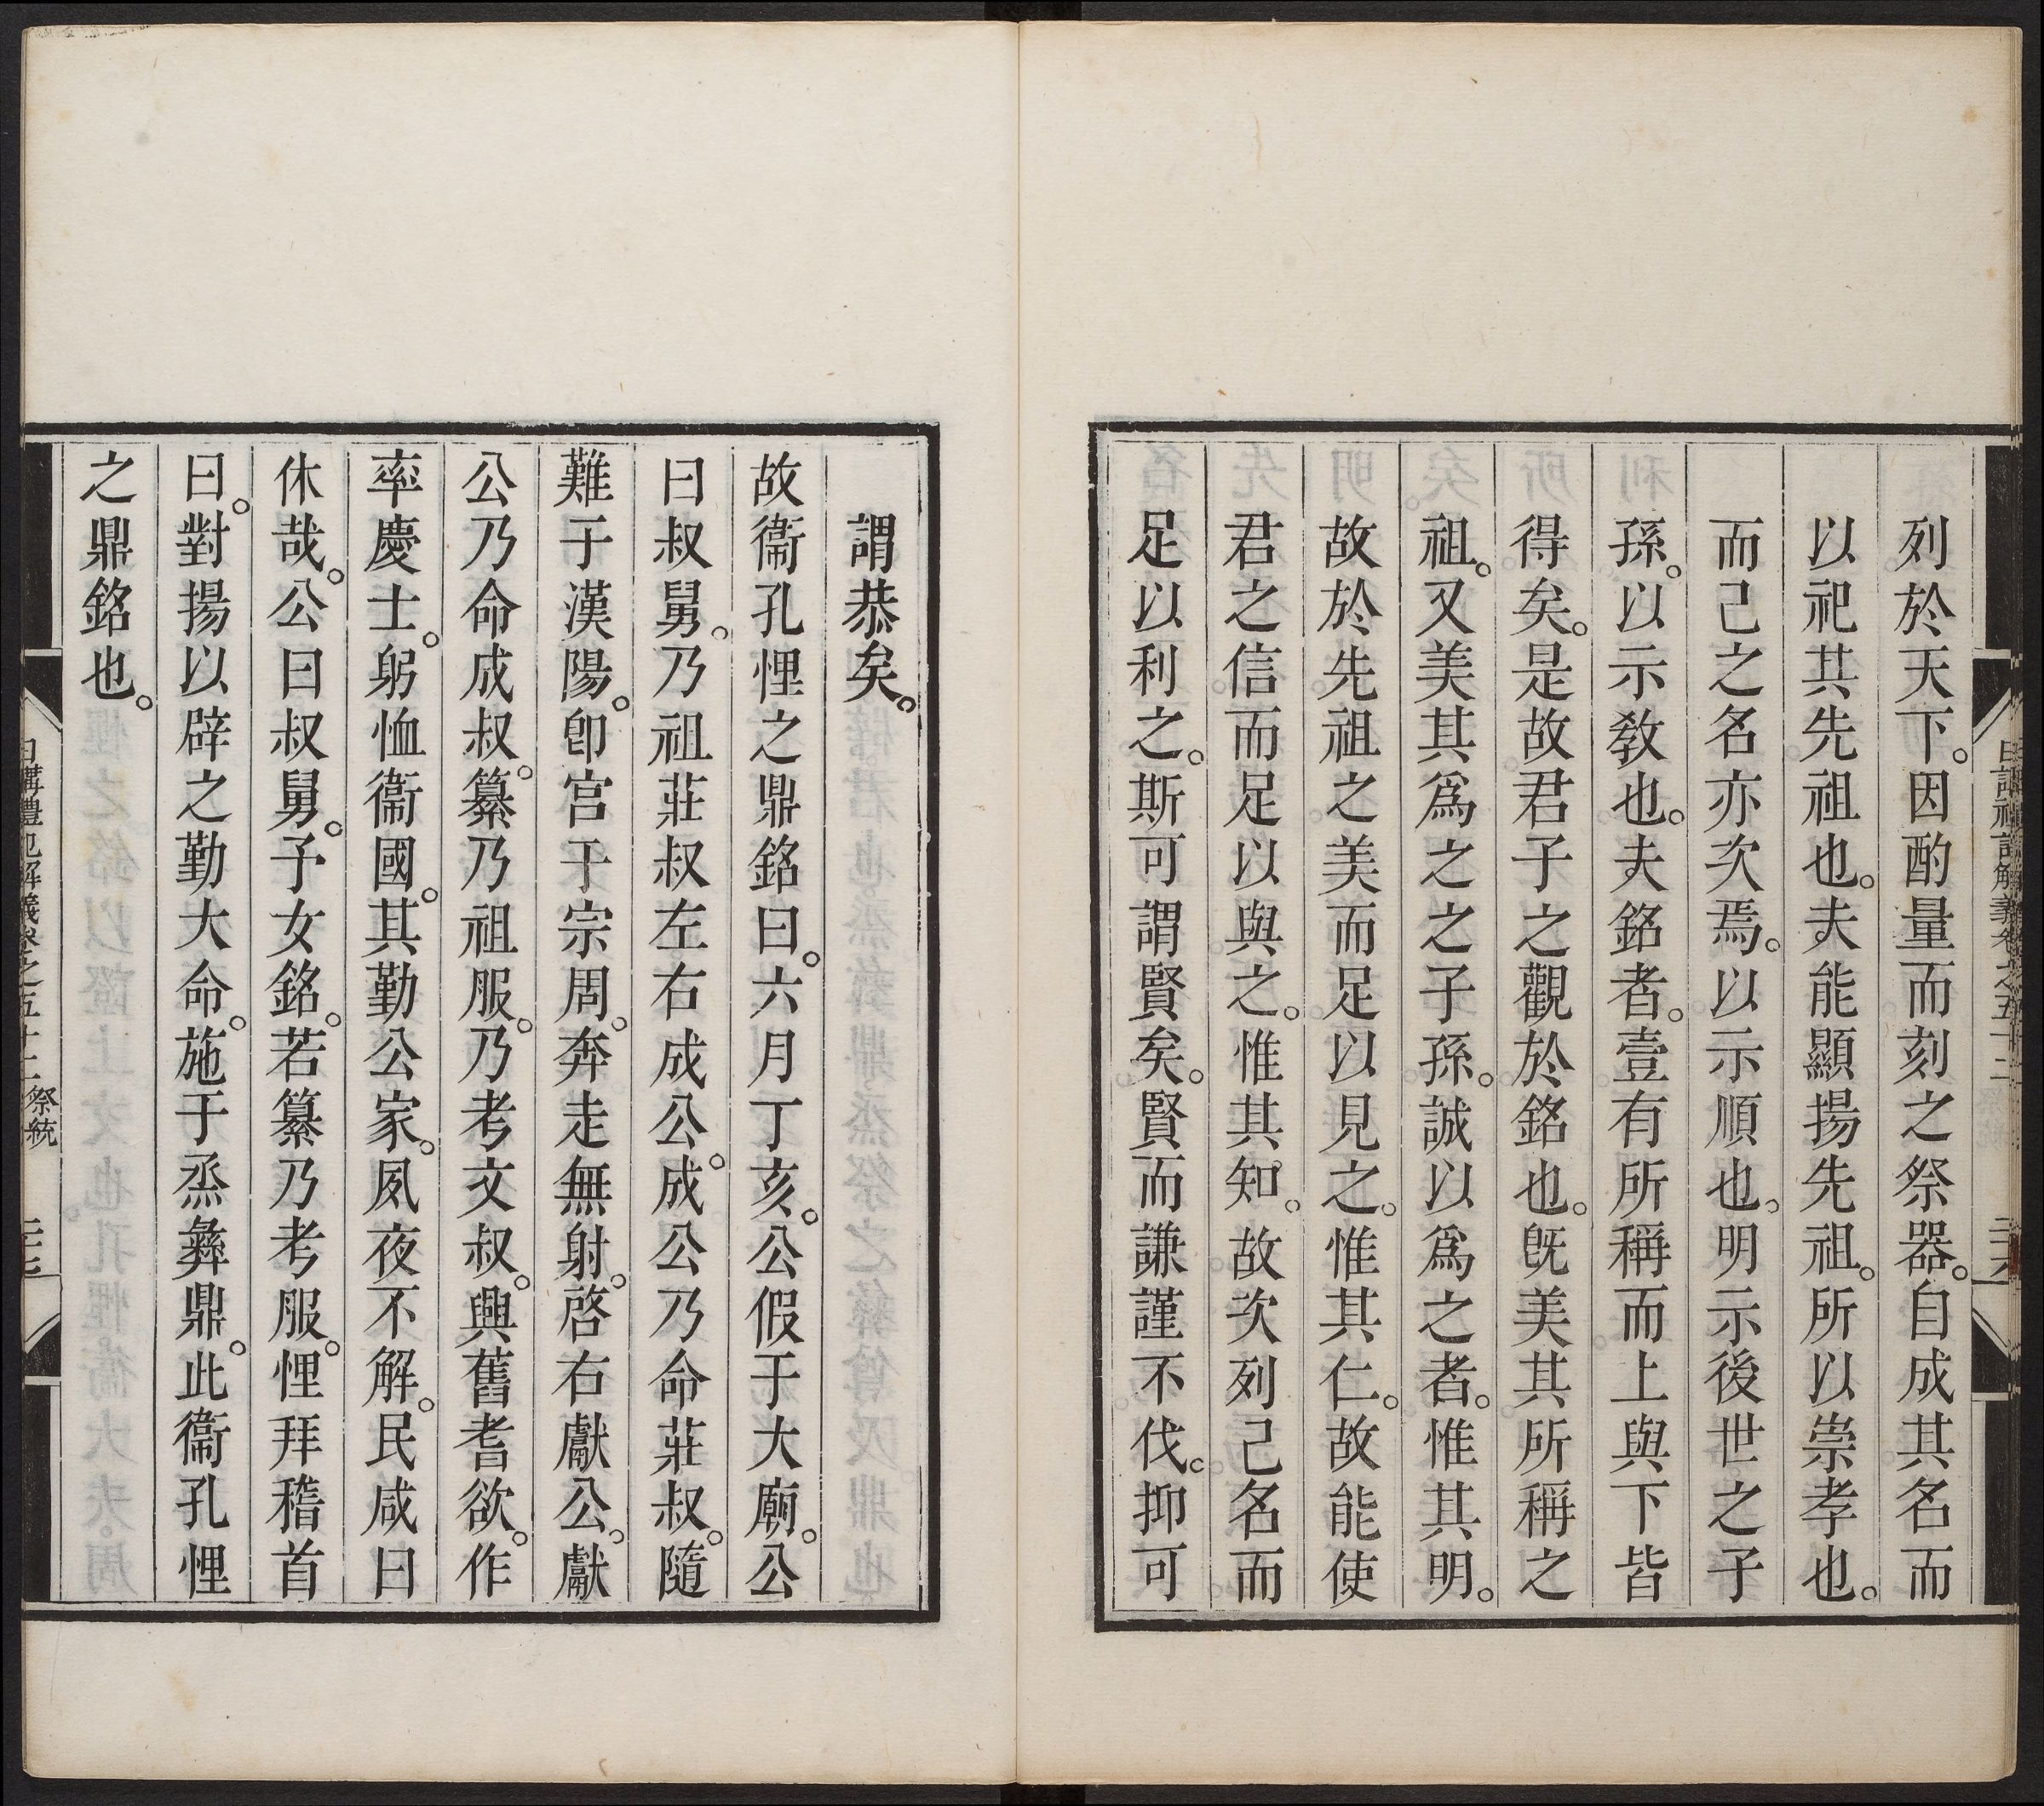 列於天下。因酌量而刻之祭器。自成其名而
以祀其先祖也。夫能顯揚先祖。所以崇孝也。
而己之名亦次焉。以示順也。明示後世之子
孫。以示敎也。夫銘者。壹有所稱而上與下皆
得矣。是故君子之觀於銘也。旣美其所稱之
祖。又美其爲之之子孫。誠以爲之者。惟其明。
故於先祖之美而足以見之。惟其仁。故能使
君之信而足以與之。惟其知。故次列己名而
足以利之。斯可謂賢矣。賢而謙謹不伐。抑可
謂恭矣。
故衞孔悝之鼎銘曰。六月丁亥。公假于大廟。公
曰叔舅。乃祖莊叔左右成公。成公乃命莊叔。隨
難于漢陽。卽宮于宗周。奔走無射。啓右獻公。獻
公乃命成叔。纂乃祖服。乃考文叔。興舊耆欲。作
率慶士。躬恤衞國。其勤公家。夙夜不解。民咸曰
休哉。公曰叔舅。予女銘。若纂乃考服。悝拜稽首
曰。對揚以辟之勤大命。施于烝彝鼎。此衞孔悝
之鼎銘也。
日講禮記解義卷之五十二 祭統 二十七